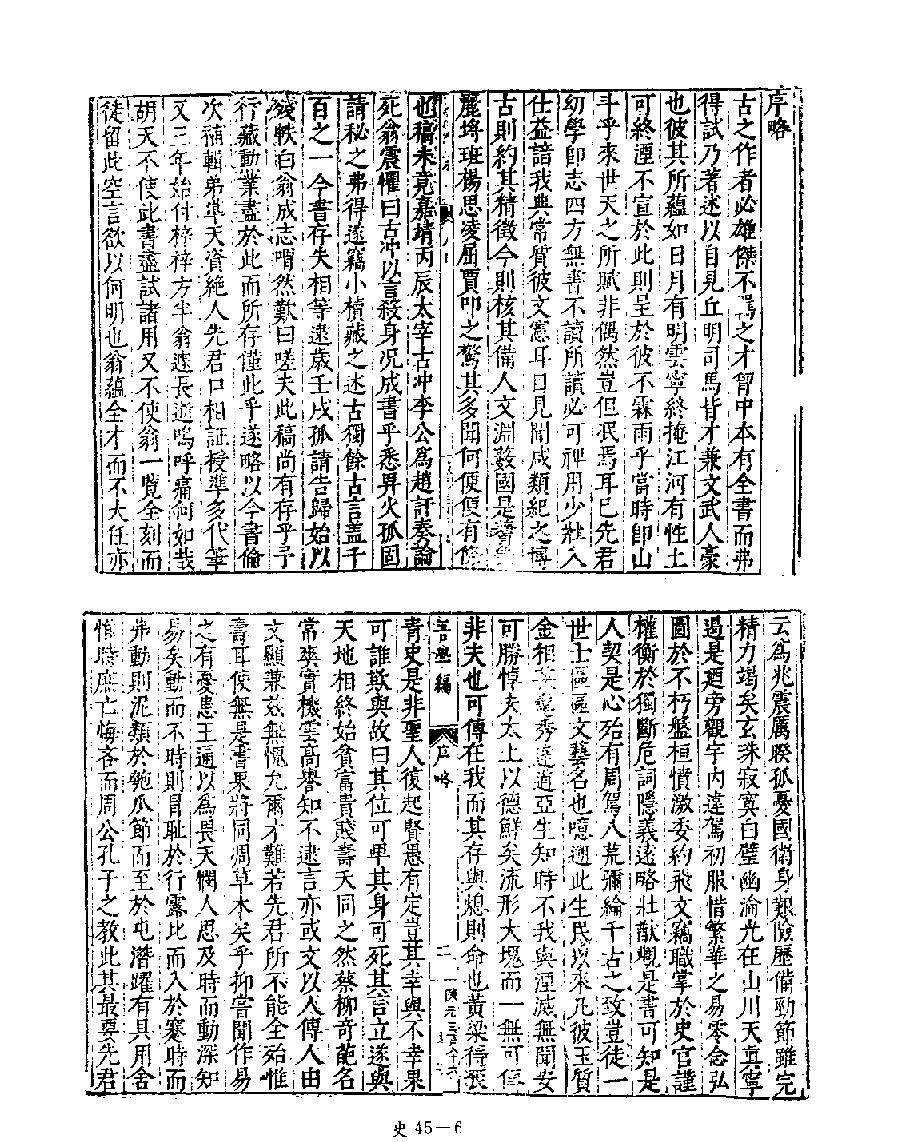 序略
古之作者必雄傑不羈之才胷中本有全書而弗
得試乃著述以自見丘明司馬皆才兼文武人豪
也彼其所蘊如日月有明雲寧終掩江河有性土
可終湮不宣於此則呈於彼不霖雨乎當時卽山
斗乎來世天之所賦非偶然豈但泯焉耳已先君
幼學卽志四方無書不讀所讀必可裨用少壯入
仕益諳我典常質彼文憲耳目見聞成類紀之博
古則約其精徵今則核其備人文淵藪國是
麗埒班楊思凌屈賈卽之驚其多聞何便便有餘
也稿未竟嘉靖丙辰太宰古冲李公爲趙訐奏論
死翁震懼曰古冲以言殺身况成書乎悉畀火孤固
請秘之弗得遂竊小楨藏之述古獨餘古言盖千
百之一今書存失相等逮歲壬戌孤請告歸始以
殘帙白翁成志喟然歎曰嗟夫此稿尚有存乎予
行藏動業盡於此而所存僅此乎遂略以今書倫
次補輯弟凖天資絶人先君口相証授凖多代筆
又三年始付梓梓方半翁遽長逝嗚呼痛何如哉
胡天不使此書盡試諸用又不使翁一覽全刻而
徒留此空言欲以何明也翁蘊全才而不大任亦
云爲兆震厲暌孤憂國衛身艱險歷備勁節雖完
精力竭矣玄珠寂寞白璧幽淪光在山川天真寧
過是廼旁觀宇内違駕初服惜繁華之易零念弘
圖於不朽盤桓憤激委約飛文竊職掌於史官謹
權衡於獨斷危詞隱義遠略壯猷覩是書可知是
人契是心殆有周駕八荒彌綸千古之致豈徒一
世士區區文藝名也噫遡此生民以來凡彼玉質
金相英毓秀達適亞生知時不我與湮滅無聞安
可勝悼夫太上以德鮮矣流形大塊而一無可俾
非夫也可傳在我而其存與熄則命也黃粱得喪
吾學編 序略 二
青史是非聖人復起賢愚有定豈其幸與不幸果
可誰欺與故曰其位可卑其身可死其言立遂與
天地相終始貧富貴賤壽夭同之然蔡柳奇葩名
常爽實機雲高譽知不逮言亦或文以人傳人由
文顯兼玆無愧允爾才難若先君所不能全殆惟
壽耳使無是書果將同凋草木矣乎抑嘗聞作易
之有憂患王通以爲畏天憫人思及時而動深知
易矣動而不時則冒耻於行露比而入於蹇時而
弗動則泥類於匏瓜節而至於屯潛躍有具用舍
惟時庶亡悔吝而周公孔子之教此其最要先君
史 45—6